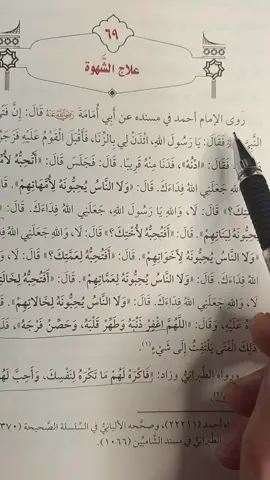 ٦٩
علاج الشَّهوة
روى الإمام أحمد في مسنده عن أَبِي أُمَامَةَ رَضِيَ اللَّهُ عَنْهُ قَالَ: إِنَّ فَتًى
فَقَالَ: يَا رَسُولَ اللهِ، ائْذَنْ لِي بِالزِّنَا، فَأَقْبَلَ الْقَوْمُ عَلَيْهِ
فَقَالَ: «ادْنُهْ»، فَدَنَا مِنْهُ قَرِيبًا. قَالَ: فَجَلَسَ قَالَ: «أَتُحِبُّهُ
جَعَلَنِي اللهُ فِدَاءَكَ. قَالَ: «وَلَا النَّاسُ يُحِبُّونَهُ لِأُمَّهَاتِهِمْ». قَالَ:
قَالَ: لَا، وَاللهِ يَا رَسُولَ اللهِ، جَعَلَنِي اللهُ فِدَاءَكَ. قَالَ:
يُحِبُّونَهُ لِبَنَاتِهِمْ». قَالَ: «أَفَتُحِبُّهُ لِأُخْتِكَ؟» قَالَ: لَا، وَاللهِ جَعَلَنِي اللهُ فِدَاءَكَ.
«وَلَا النَّاسُ يُحِبُّونَهُ لِأَخَوَاتِهِمْ». قَالَ: «أَفَتُحِبُّهُ لِعَمَّتِكَ؟» قَالَ: لَا،
اللهُ فِدَاءَكَ. قَالَ: «وَلَا النَّاسُ يُحِبُّونَهُ لِعَمَّاتِهِمْ». قَالَ: «أَفَتُحِبُّهُ
لَا، وَاللهِ جَعَلَنِي اللهُ فِدَاءَكَ. قَالَ: «وَلَا النَّاسُ يُحِبُّونَهُ لِخَالَاتِهِمْ».
عَلَيْهِ، وَقَالَ: «اللَّهُمَّ اغْفِرْ ذَنْبَهُ وَطَهِّرْ قَلْبَهُ، وَحَصِّنْ فَرْجَهُ»،
ذَلِكَ الْفَتَى يَلْتَفِتُ إِلَى شَيْءٍ(١).
ورواه الطَّبرانيُّ وزاد: «فَاكْرَهْ لَهُمْ مَا تَكْرَهُ لِنَفْسِكَ، وَأَحِبَّ لَهُمْ
أحمد (٢٢٢١١)، وصحَّحه الألبانيُّ في السِّلسلة الصَّحيحة
الطَّبرانيُّ في مسند الشَّاميِّين (١٠٦٦).